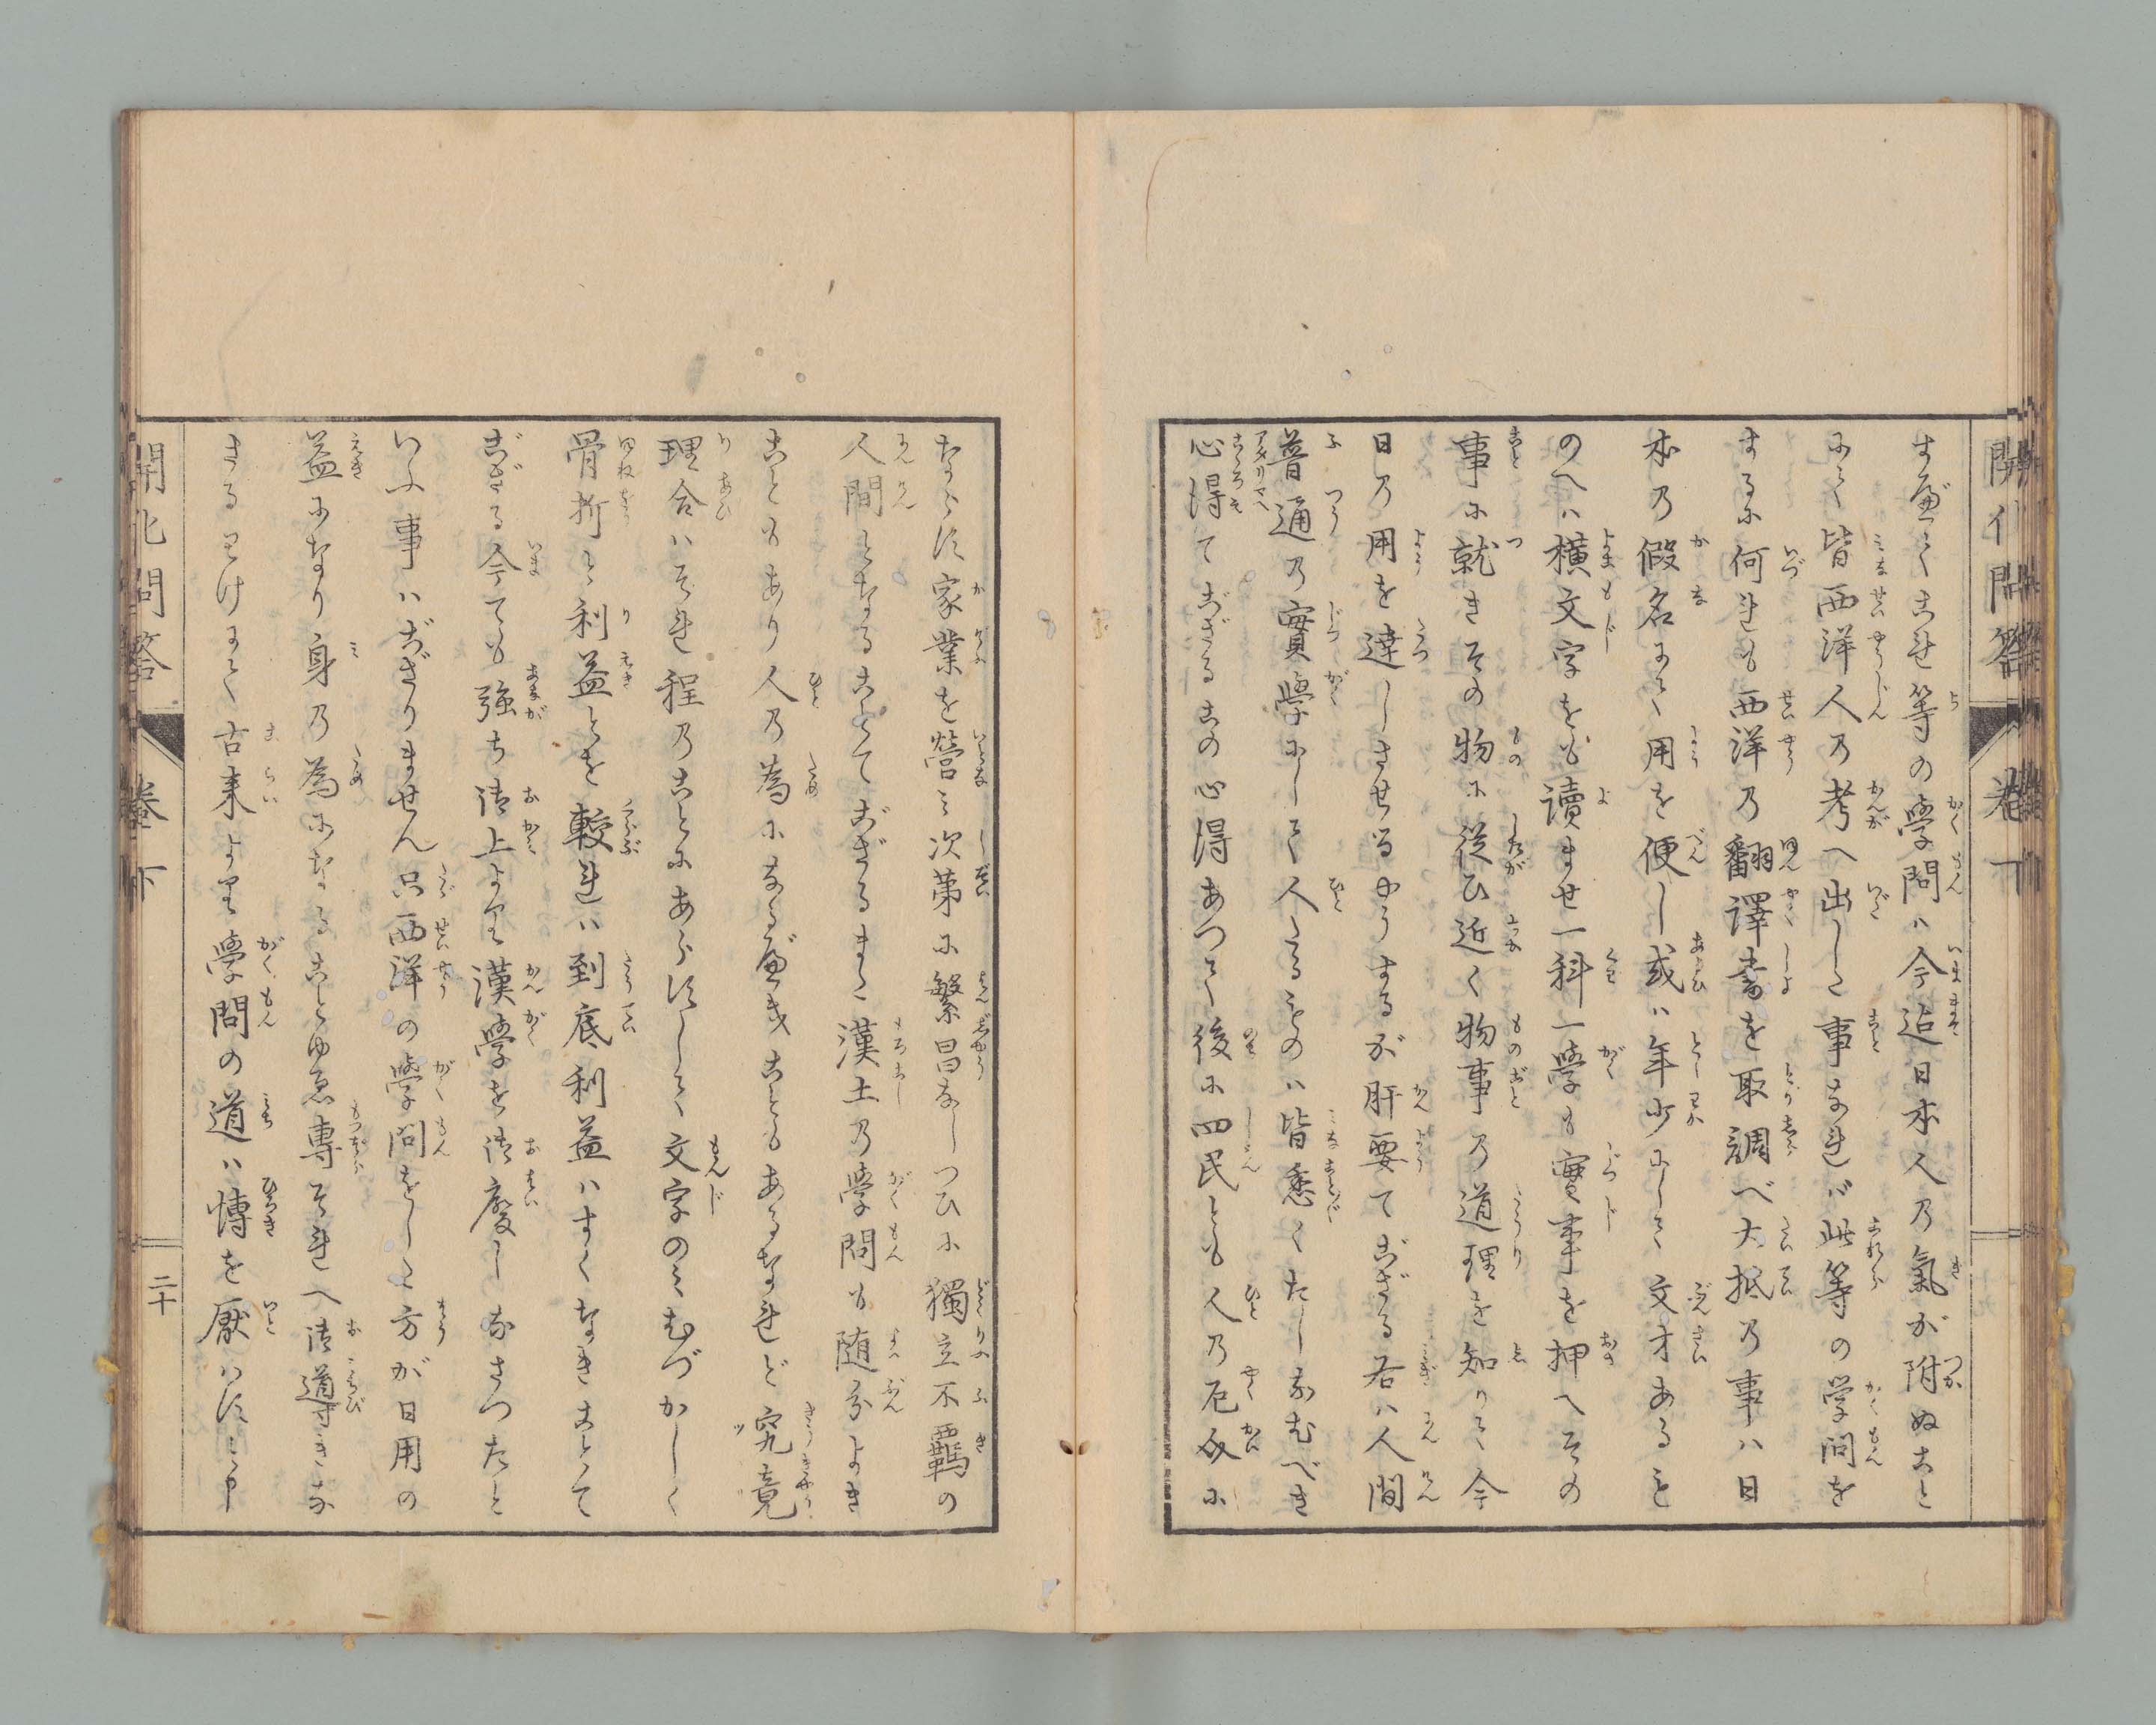 開化問答 巻下
すべてこれ等の學問ハ今迄日本人の氣が附ぬこと
にて皆西洋人の考へ出した事なれバ此等の学問を
するに何れも西洋の翻譯書を取調べ大抵の事ハ日
本の假名にて用を便し或ハ年少にして文才あるも
のへハ横文字をも讀ませ一科一學も實事を押へその
事に就きその物に従ひ近く物事の道理を知りて今
日の用を達しさせるやうするが肝要でござる右ハ人間
普通の實學にして人たるものハ皆悉くたしなむべき
心得でござるこの心得あつて後に四民とも人の厄介に
ならず家業を營み次第に繁昌なしつひに獨立不羈の
人間となることでござるまた漢土の學問も随分よき
こともあり人の為になるべきこともあるなれど究竟
理合ハそれ程のことにあらずして文字のみむづかしく
骨折と利益とを較れハ到底利益ハすくなきことで
ござる今でも強ち御上より漢學を御廢しなさつたと
いふ事ハござりません只西洋の學問をした方が日用の
益になり身の為になることゆゑ專らそれへ御導きな
さるわけにて古来より學問の道ハ博を厭ハずと申
開化問答 巻下 二十